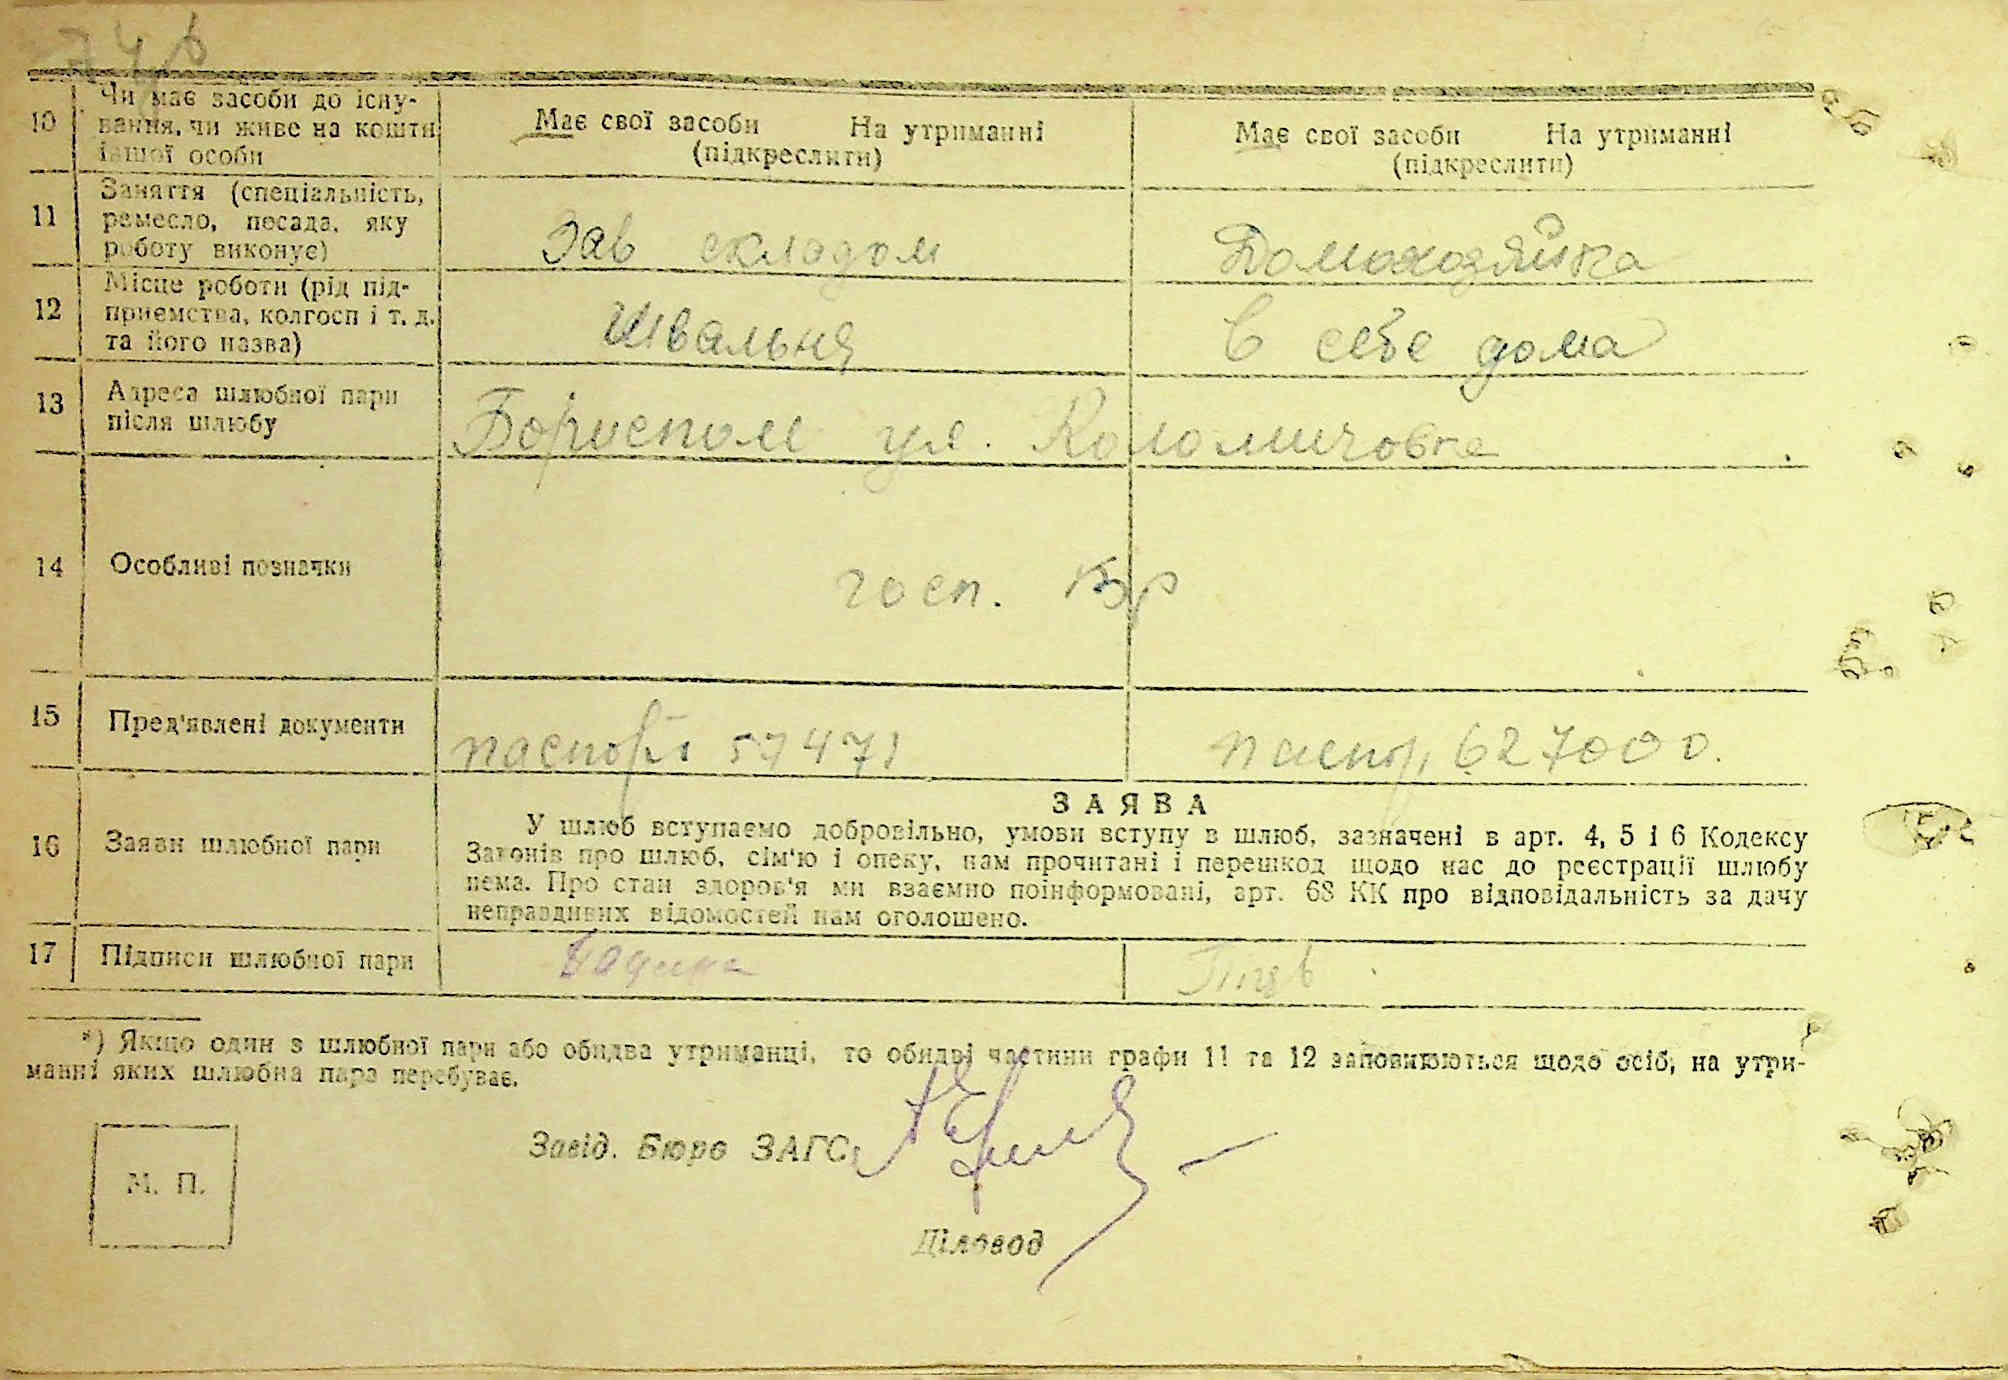 74
10 Чи має засоби до існу-
вання, чи живе на кошти
іншої особи
Має свої засоби На утриманні
(підкреслити)
Має свої засоби На утриманні
(підкреслити)
11 Заняття (спеціальність,
ремесло, посада, яку
роботу виконує)
Зав складом
Домохозяйка
12 Місце роботи (рід під-
приємства, колгосп і т. д.
та його назва)
Швальня
В себе дома
13 Адреса шлюбної пари
після шлюбу
Бориспол ул. Коломичовка
14 Особливі позначки
госп.
15 Пред'явлені документи
паспорт 57471
паспор, 627000.
16 Заяви шлюбної пари
ЗАЯВА
У шлюб вступаємо добровільно, умови вступу в шлюб, зазначені в арт. 4, 5 і 6 Кодексу
Законів про шлюб, сім'ю і опеку, нам прочитані і перешкод щодо нас до реєстрації шлюбу
нема. Про стан здоров'я ми взаємно поінформовані, арт. 68 КК про відповідальність за дачу
неправдивих відомостей нам оголошено.
17 Підписи шлюбної пари
*) Якщо один з шлюбної пари або обидва утриманці, то обидві частини графи 11 та 12 заповнюються щодо осіб, на утри-
манні яких шлюбна пара перебуває.
Завід. Бюро ЗАГС
М. П.
Діловод